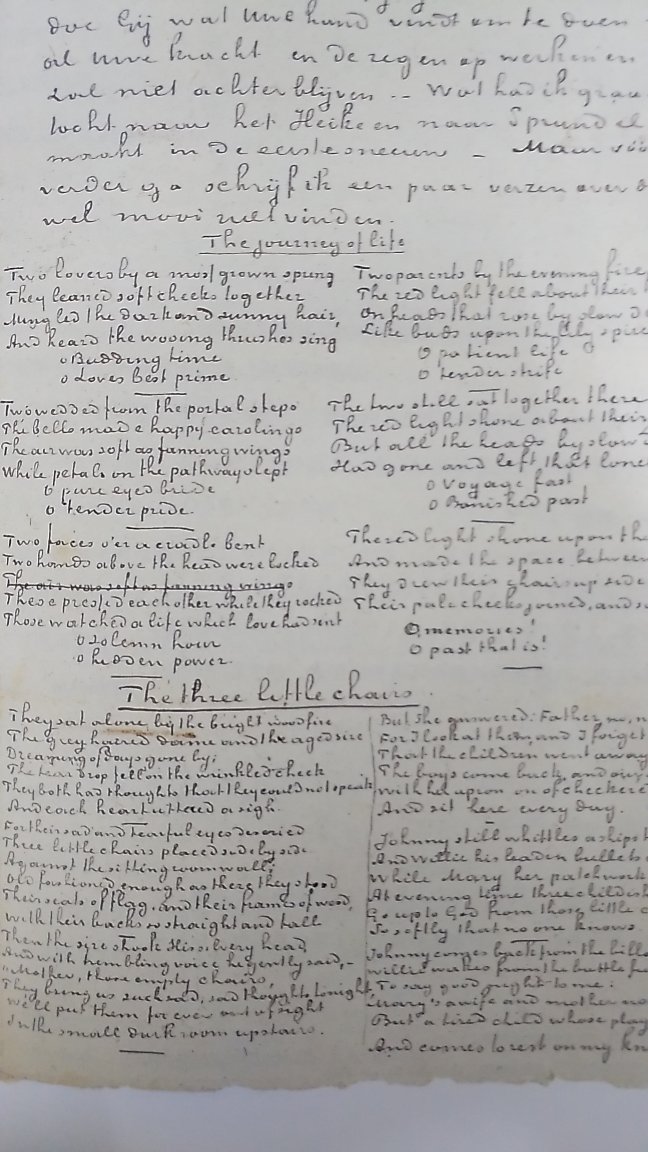 doe Gij wat Uwe hand vindt om te doen
al Uwe kracht en de zegen op werken en
zal niet achterblijven. – Wat had ik graa
tocht naar het Heike en naar Sprundel
maakt in de eerste sneeuw – Maar vóó
verder ga schrijf ik een paar verzen over d
wel mooi zult vinden.
The journey of life
Two lovers by a moss grown spring
They leaned soft cheeks together
Mingled the dark and sunny hair,
And heard the wooing thrushes sing
o Budding time
o Loves best prime.
Two wedded from the portal steps
The bells made happy carolings
The air was soft as fanning wings
While petals on the pathway slept
o pure eyed bride
o tender pride.
Two faces o'er a cradle bent
Two hands above the head were locked
The air was soft as fanning wings
These pressed each other while they rocked
Those watched a life which love had sent
o solemn hour
o hidden power.
Two parents by the evening fire
The red light fell about their
On heads that rose by slow d
Like buds upon the lily spire
O patient life
O tender strife
The two still sat together there
The red light shone about their
But all the heads by slow
Had gone and left that lone
O Voyage fast
O Banished past
The red light shone upon the
And made the space between
They drew their chairs up side
Their pale cheeks joined, and s
O memories!
O past that is!
The three little chairs.
They sat alone by the bright wood fire
The grey haired dame and the aged sire
Dreaming of days gone by;
The tear drop fell on the wrinkled cheek
They both had thoughts that they could not speak
And each heart uttered a sigh.
For their sad and tearful eyes descried
Three little chairs placed side by side
Against the sitting room wall;
Old fashioned enough as there they stood
Their seats of flag, and their frames of wood,
With their backs so straight and tall
Then the sire shook His silvery head
And with trembling voice he gently said,-
"Mother, those empty chairs,
They bring us such sad, sad thoughts tonight
We'll put them for ever out of sight
In the small dark room upstairs.
But she answered: Father, no, n
For I look at them and I forget
That the children went away
The boys come back, and our
With her apron on of checkere
And sit here every day.
Johnny still whittles a ships t
And Willie his leaden bullets
While Mary her patchwork
At evening time three childish
Go up to God from those little c
So softly that no one knows.
Johnny comes back from the billo
Willie wakes from the battle f
To say good night to me:
Mary's a wife and mother no
But a tired child whose play
And comes to rest on my kn